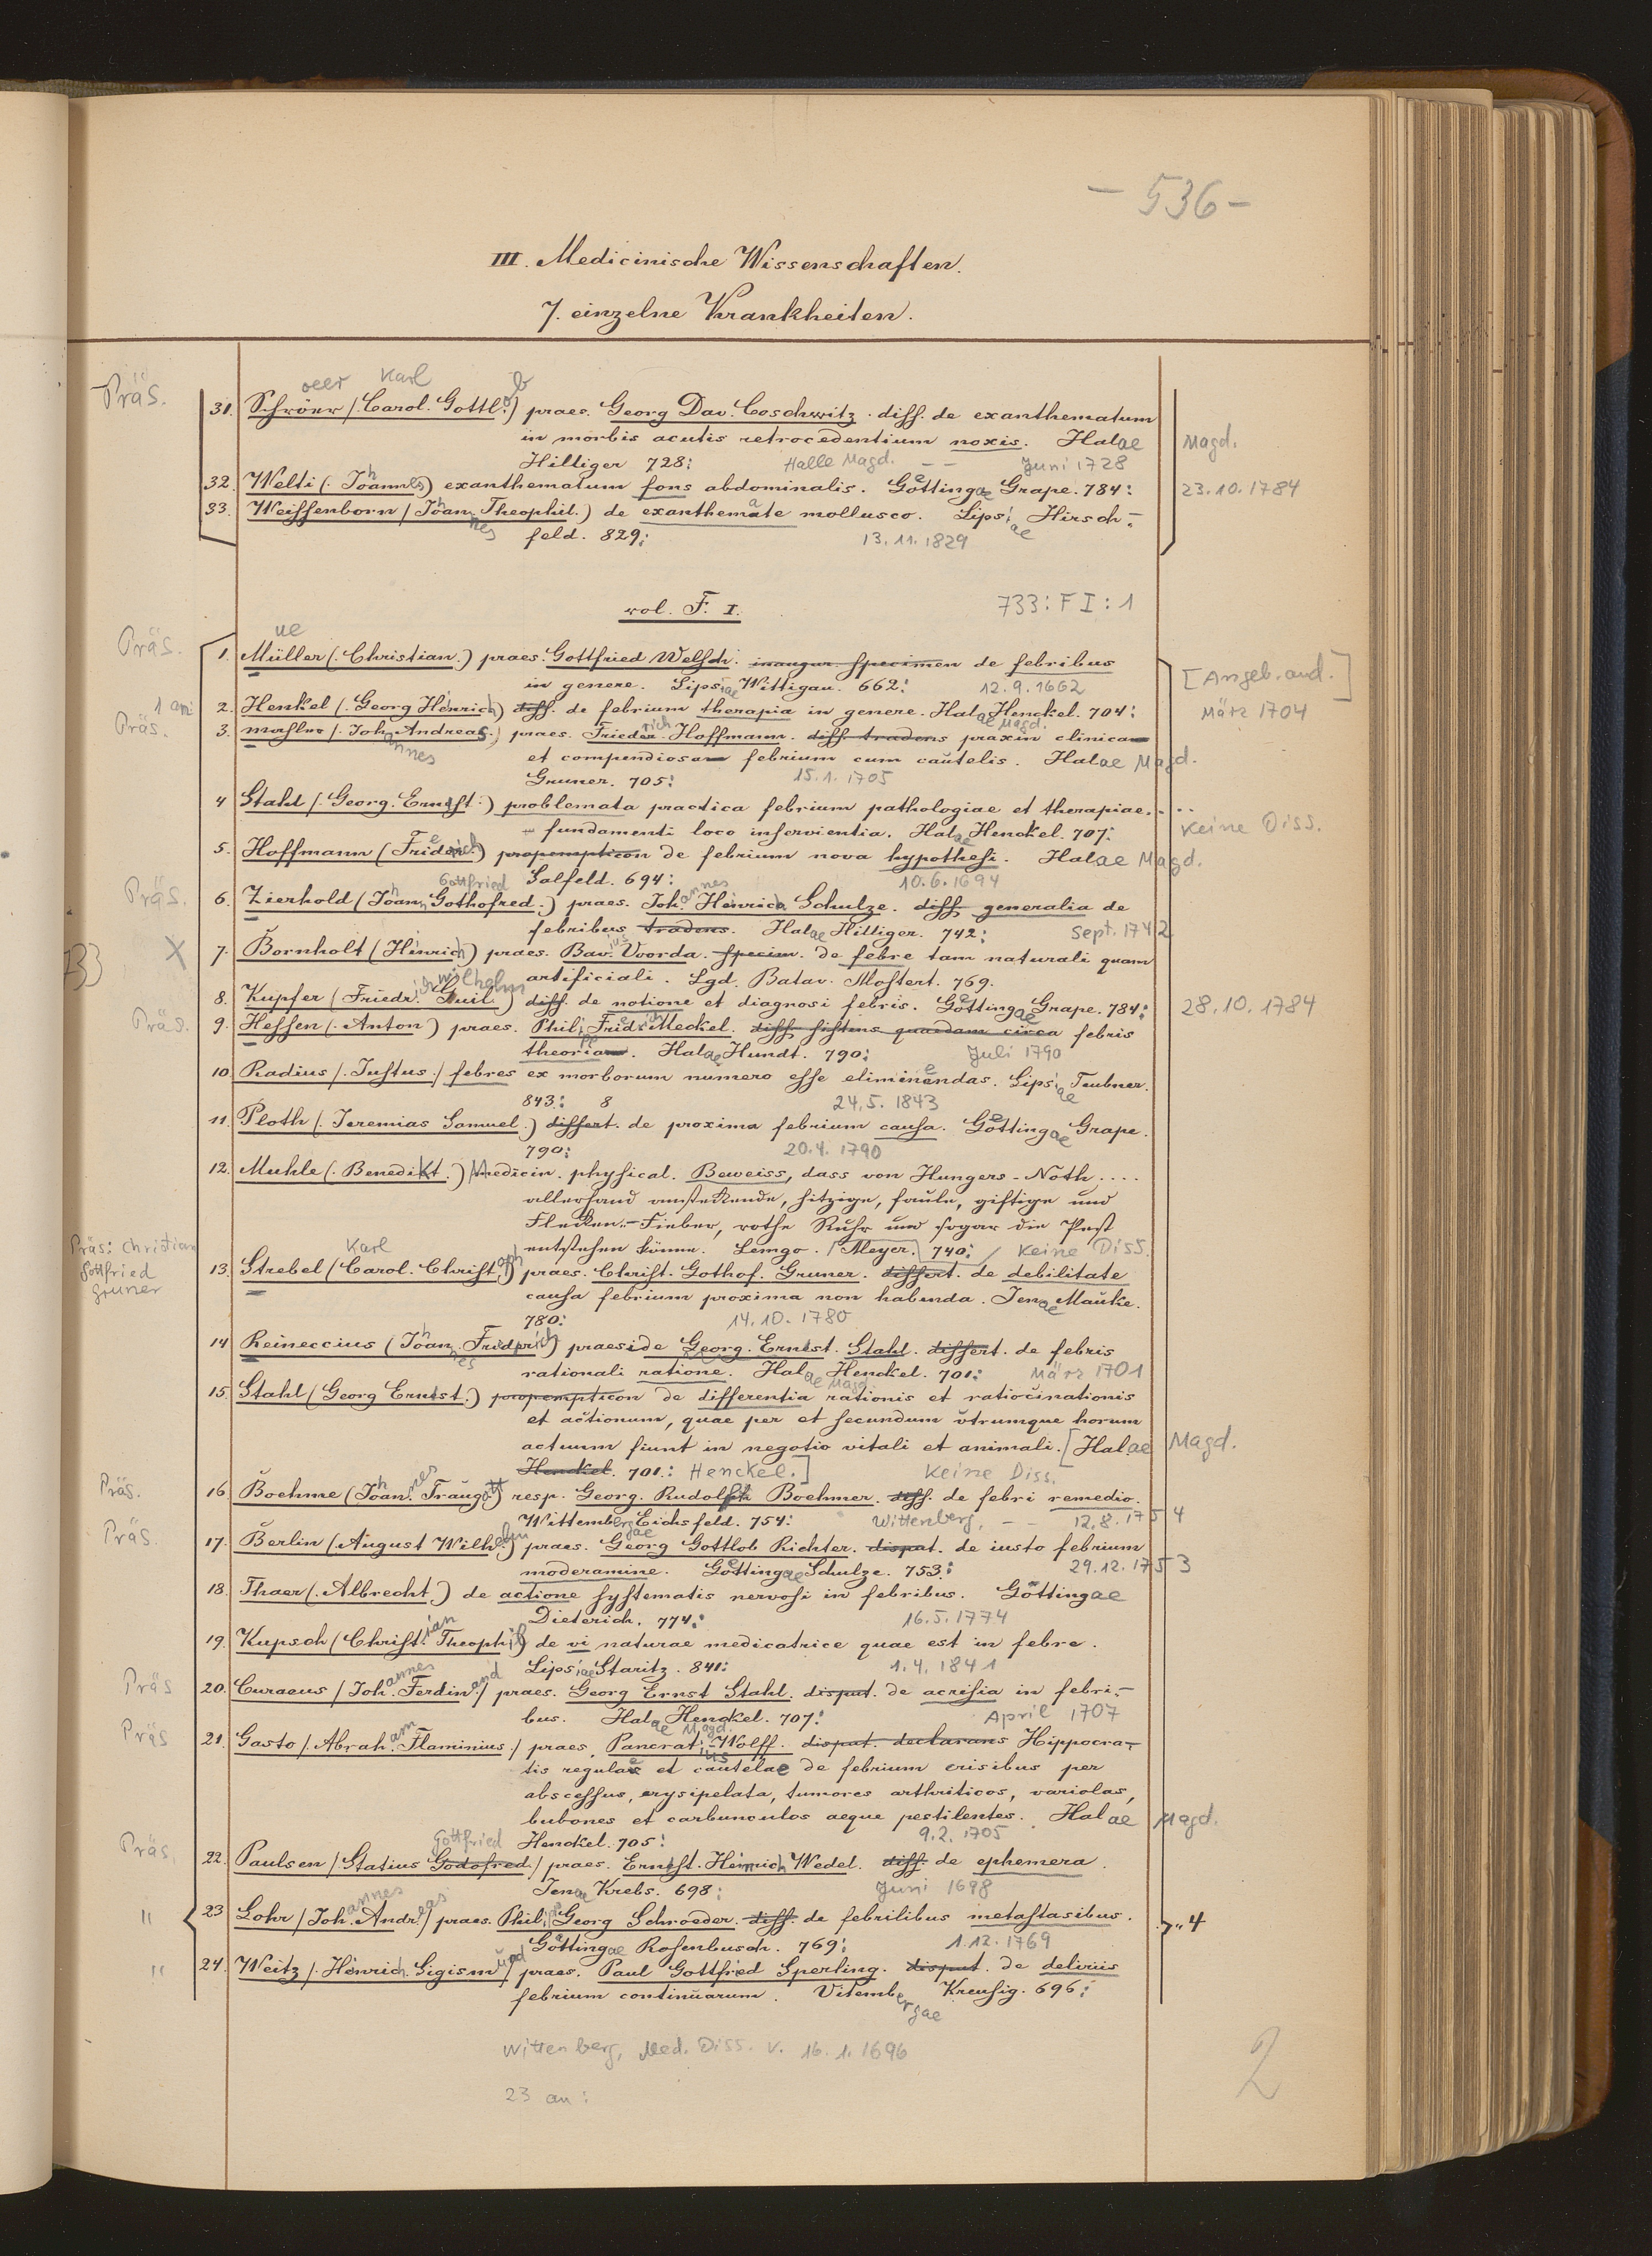 - 536 -
III. Medicinische Wissenschaften.
7. einzelne Krankheiten.
oeer Karl b
Präs. 31. Schröer /. Carol. Gottl.) praes. Georg Dav. Coschwitz. diss. de exanthematum
in morbis acutis retrocedentium noxis. Halae Magd.
Hilliger 728: Halle Magd. - - Juni 1728
32. Welti (. Johannes) exanthematum fons abdominalis. Göttingae Grape. 784: 23.10.1784
33. Weissenborn /. Johannes Theophil.) de exanthemate mollusco. Lipsiae Hirsch-
feld. 829: 13.11.1829
vol. F. I. 733: F I : 1
ue
Präs. 1. Müller (. Christian.) praes. Gottfried Welsch. inaugur. specimen de febribus
in genere. Lipsiae Wittigau. 662: 12.9.1662 [Angeb. and.]
1 an: 2. Henkel (. Georg Henrich) diss. de febrium therapia in genere. Halae Magd. Henckel. 704: März 1704
Präs. 3. Johannes Andreas.) praes. Friederich Hoffmann. diss. tradens praxin clinicam
et compendiosam febrium cum cautelis. Halae Magd.
Gruner. 705: 15.1.1705
4 Stahl (. Georg. Ernest.) problemata practica febrium pathologiae et therapiae. - ..
fundamenti loco inservientia. Halae Henckel. 707: Keine Diss.
5. Hoffmann (Friderich) propempticon de febrium nova hypothesi. Halae Magd.
Salfeld. 694: 10.6.1694
Gottfried
Präs. 6. Zierhold (Johann Gothofred.) praes. Johannes Henrich Schulze. diss. generalia de
febribus tradens. Halae Hilliger. 742: Sept. 1742
733 X 7. Bornholt (Hinrich) praes. Bavius Voorda. specim. de febre tam naturali quam
artificiali. Lgd. Batav. Mostert. 769.
Wilhelm
8. Kupfer (Friedr. Guil.) diss. de notione et diagnosi febris. Göttingae Grape. 784: 28.10.1784
Präs. 9. Hessen (. Anton) praes. Philipp Friedrich Meckel. diss. sistens quaedam circa febris
theoriam. Halae Hundt. 790: Juli 1790
10. Radius /. Justus./ febres ex morborum numero esse eliminendas. Lipsiae Teubner.
843: 8 24.5.1843
11. Ploth (. Jeremias Samuel.) dissert. de proxima febrium causa. Göttingae Grape.
790: 20.4.1790
12. Muhle (. Benedikt.) Medicin. physical. Beweiss, dass von Hungers-Noth....
allerhand ansteckende, hitzige, faule, giftige und
Flecken-Fieber, rothe Ruhr und sogar die Pest
entstehen könne. Lemgo. / Meyer. 740: / Keine Diss.
Präs: Christian Gottfried Gruner
Karl
13. Strebel (Carol. Christoph) praes. Christ. Gothof. Gruner. dissert. de debilitate
causa febrium proxima non habenda. Jenae Mauke.
780: 14.10.1780
14 Reineccius (Johannes Friderich) praeside Georg. Ernest. Stahl. dissert. de febris
rationali ratione. Halae Magd. Henckel. 701: März 1701
15. Stahl (Georg Ernest.) propempticon de differentia rationis et ratiocinationis
et actionum, quae per et secundum utrumque horum
actuum fiunt in negotio vitali et animali. [Halae Magd.
Henckel. 701: Henckel.] Keine Diss.
Präs. 16. Boehme (Johannes Traugott) resp. Georg. Rudolph Boehmer. diss. de febri remedio.
Wittembergae Eichsfeld. 754: Wittenberg, - - 12.8.1754
Präs. 17. Berlin (August Wilhelm) praes. Georg Gottlob Richter. disput. de iusto febrium
moderamine. Göttingae Schulze. 753: 29.12.1753
18. Thaer (. Albrecht.) de actione systematis nervosi in febribus. Göttingae
Dieterich. 774: 16.5.1774
19. Kupsch (Christian Theophil) de vi naturae medicatrice quae est in febre.
Lipsiae Staritz. 841: 1.4.1841
Präs 20. Curaeus /. Johannes Ferdinand./ praes. Georg Ernst Stahl. disput. de acrisia in febri-
bus. Halae Magd. Henckel. 707: April 1707
Präs 21. Gasto /. Abraham Flaminius./ praes. Pancratius Wolff. disput. declarans Hippocra-
tis regulae et cautelae de febrium crisibus per
abscessus, erysipelata, tumores arthriticos, variolas,
bubones et carbunculos aeque pestilentes. Halae Magd.
Henckel. 705: 9.2.1705
Gottfried
Präs. 22. Paulsen /. Statius Godofred./ praes. Ernest. Heinrich Wedel. diss. de ephemera.
Jenae Krebs. 698: Juni 1698
" 23 Lohr /. Johannes Andreas/ praes. Philipp Georg Schroeder. diss. de febrilibus metastasibus.
Göttingae Rosenbusch. 769: 1.12.1769 " 4
" 24. Weitz /. Henrich Sigismund/ praes. Paul Gottfried Sperling. disput. de deliriis
febrium continuarum. Vitembergae Kreusig. 696:
Wittenberg, Med. Diss. v. 16.1.1696
23 an:
2